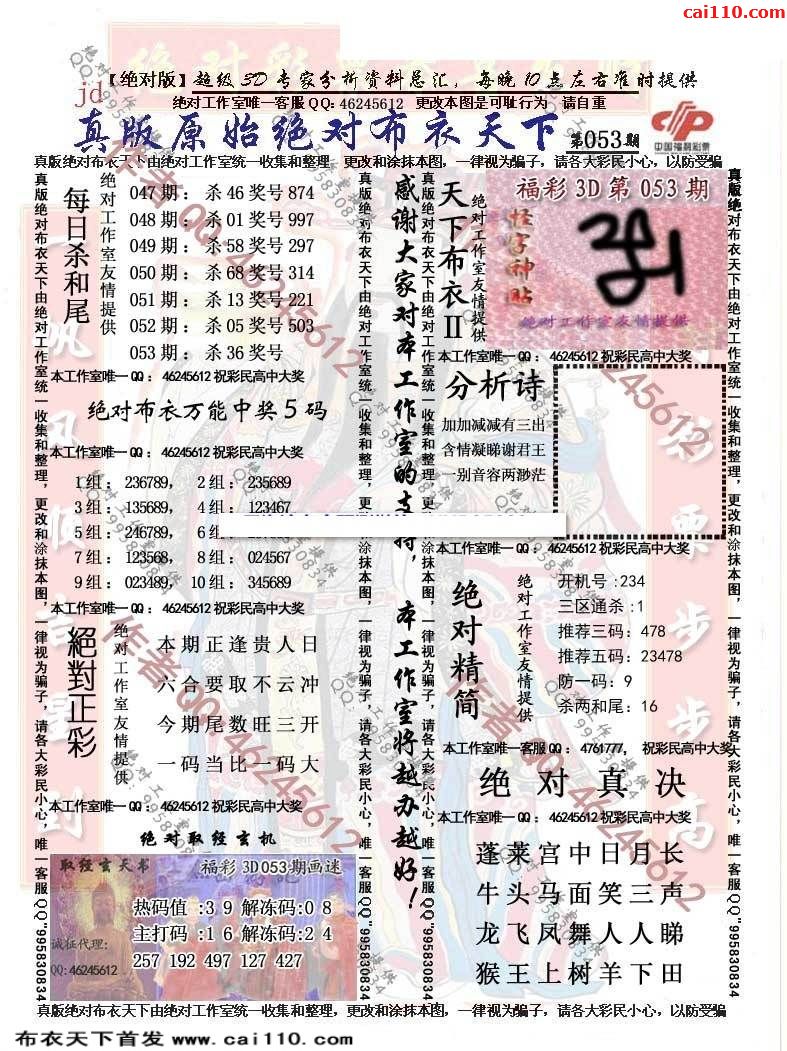 cai110.com
【绝对版】超级3D专家分析资料总汇，每晚10点左右准时提供
jd
绝对工作室唯一客服QQ：46245612 更改本图是可耻行为 请自重
真版原始绝对布衣天下
第053期
中国福利彩票
真版绝对布衣天下由绝对工作室统一收集和整理，更改和涂抹本图，一律视为骗子，请各大彩民小心，以防受骗
每日杀和尾
绝对工作室友情提供
047期：杀46奖号874
048期：杀01奖号997
049期：杀58奖号297
050期：杀68奖号314
051期：杀13奖号221
052期：杀05奖号503
053期：杀36奖号
本工作室唯一QQ：46245612祝彩民高中大奖
绝对布衣万能中奖5码
本工作室唯一QQ：46245612祝彩民高中大奖
1组：236789， 2组：235689
3组：135689， 4组：123467
5组：246789， 6组
7组：123568， 8组：024567
9组：023489， 10组：345689
本工作室唯一QQ：46245612祝彩民高中大奖
絕對正彩
绝对工作室友情提供
本期正逢贵人日
六合要取不云冲
今期尾数旺三开
一码当比一码大
本工作室唯一QQ：46245612祝彩民高中大奖
绝对取经玄机
取经玄天书
福彩3D053期画迷
热码值：39解冻码：08
主打码：16解冻码：24
257 192 497 127 427
诚征代理：
QQ：46245612
感谢大家对本工作室的支持，本工作室将越办越好！
天下布衣II
绝对工作室友情提供
福彩3D第053期
怪字神贴
绝对工作室友情提供
本工作室唯一QQ：46245612祝彩民高中大奖
分析诗
加加减减有三出
含情凝睇谢君王
一别音容两渺茫
本工作室唯一QQ：46245612祝彩民高中大奖
绝对精简
绝对工作室友情提供
开机号：234
三区通杀：1
推荐三码：478
推荐五码：23478
防一码：9
杀两和尾：16
本工作室唯一客服QQ：4761777，祝彩民高中大奖
绝对真决
本工作室唯一QQ：46245612祝彩民高中大奖
蓬莱宫中日月长
牛头马面笑三声
龙飞凤舞人人睇
猴王上树羊下田
真版绝对布衣天下由绝对工作室统一收集和整理，更改和涂抹本图，一律视为骗子，请各大彩民小心，唯一客服QQ"995830834
真版绝对布衣天下由绝对工作室统一收集和整理，更改和涂抹本图，一律视为骗子，请各大彩民小心，唯一客服QQ"995830834
真版绝对布衣天下由绝对工作室统一收集和整理，更改和涂抹本图，一律视为骗子，请各大彩民小心，唯一客服QQ"995830834
真版绝对布衣天下由绝对工作室统一收集和整理，更改和涂抹本图，一律视为骗子，请各大彩民小心，唯一客服QQ"995830834
作者QQ:46245612
真版绝对布衣天下由绝对工作室统一收集和整理，更改和涂抹本图，一律视为骗子，请各大彩民小心，以防受骗
布衣天下首发 www.cai110.com